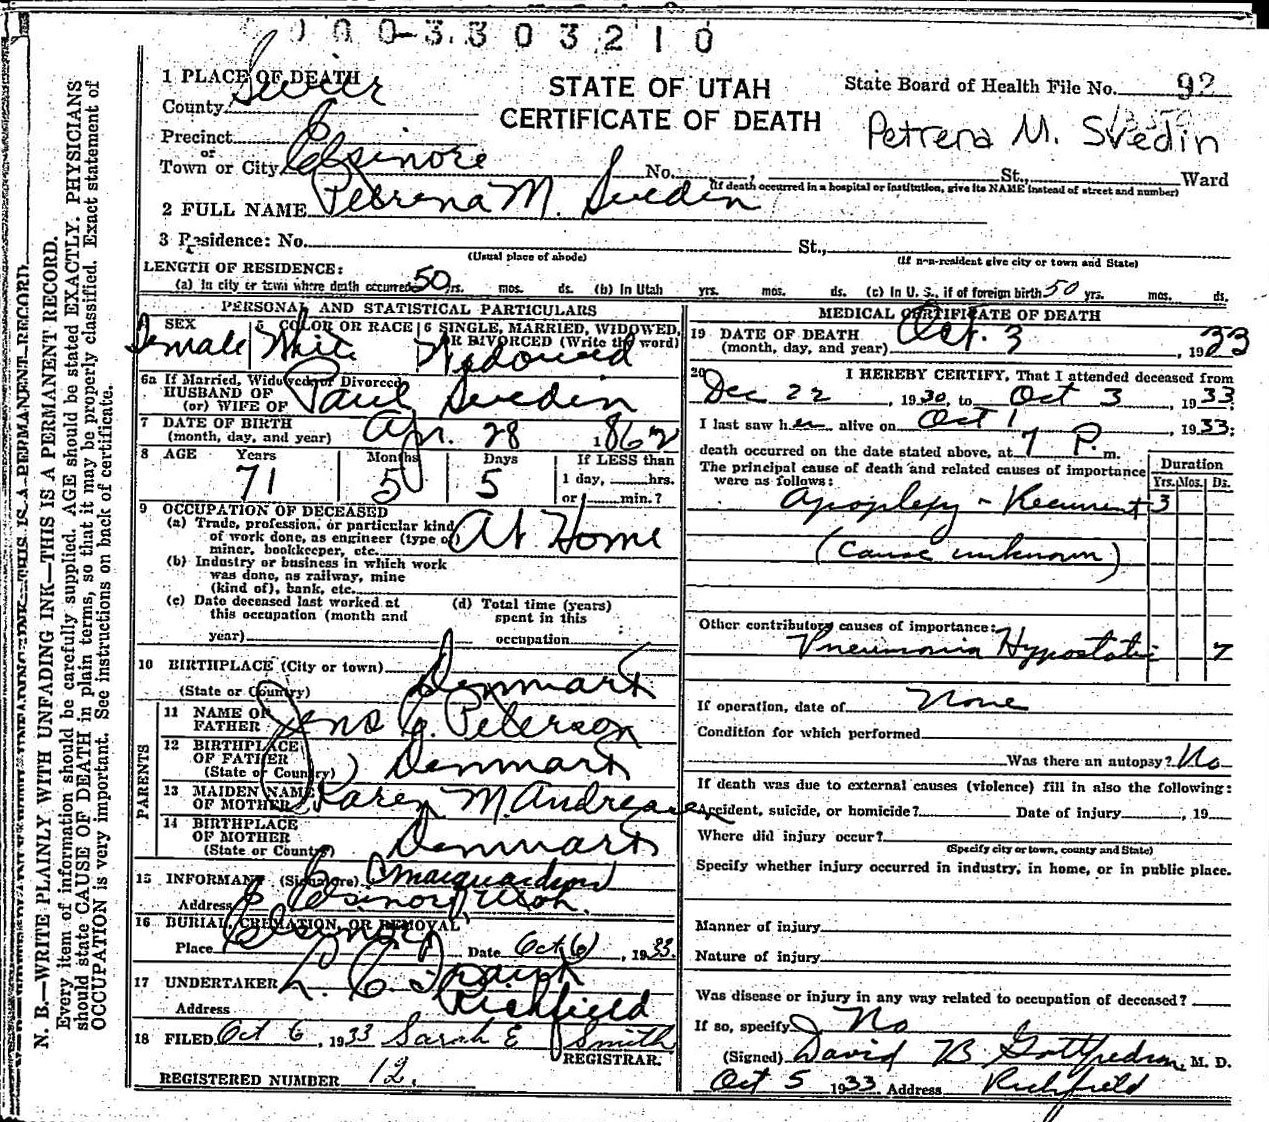 0 1 0 0 - 3 3 0 3 2 1 0
1 PLACE OF DEATH
County Sevier
STATE OF UTAH
CERTIFICATE OF DEATH
State Board of Health File No. 92
Petrena M. Svedin
Precinct
or
Town or City Elsinore No. St., Ward
(If death occurred in a hospital or institution, give its NAME instead of street and number)
2 FULL NAME Petrena M. Svedin
3 Residence: No. St.,
(Usual place of abode) (If non-resident give city or town and State)
LENGTH OF RESIDENCE:
(a) In city or town where death occurred 50 yrs. mos. ds. (b) In Utah yrs. mos. ds. (c) In U. S., if of foreign birth 50 yrs. mos. ds.
PERSONAL AND STATISTICAL PARTICULARS
SEX 5 COLOR OR RACE 6 SINGLE, MARRIED, WIDOWED, OR DIVORCED (Write the word)
Female White Widowed
6a If Married, Widowed, or Divorced
HUSBAND OF
(or) WIFE OF Paul Svedin
7 DATE OF BIRTH
(month, day, and year) Apr. 28 1862
8 AGE Years Months Days If LESS than
71 5 5 1 day, hrs.
or min.?
9 OCCUPATION OF DECEASED
(a) Trade, profession, or particular kind
of work done, as engineer (type of
miner, bookkeeper, etc. At Home
(b) Industry or business in which work
was done, as railway, mine
(kind of), bank, etc.
(c) Date deceased last worked at
this occupation (month and
year)
(d) Total time (years)
spent in this
occupation
10 BIRTHPLACE (City or town)
(State or Country) Denmark
PARENTS
11 NAME OF
FATHER Jens G. Peterson
12 BIRTHPLACE
OF FATHER
(State or Country) Denmark
13 MAIDEN NAME
OF MOTHER Karen M. Andreasen
14 BIRTHPLACE
OF MOTHER
(State or Country) Denmark
15 INFORMANT (Signature) C Marquardson
Address Elsinore, Utah.
16 BURIAL, CREMATION, OR REMOVAL
Place Elsinore Date Oct 6, 1933.
17 UNDERTAKER L. C.
Address Richfield
18 FILED Oct 6, 1933 Sarah E Smith
REGISTRAR.
REGISTERED NUMBER 12.
MEDICAL CERTIFICATE OF DEATH
19 DATE OF DEATH
(month, day, and year) Oct. 3, 1933
20 I HEREBY CERTIFY, That I attended deceased from
Dec 22, 1930, to Oct 3, 1933
I last saw her alive on Oct 1, 1933;
death occurred on the date stated above, at 7 P. m.
The principal cause of death and related causes of importance
were as follows:
Duration
Yrs. Mos. Ds.
Apoplexy - Recurrent 3
(Cause unknown)
Other contributory causes of importance:
Pneumonia Hypostatic 7
If operation, date of None
Condition for which performed
Was there an autopsy? No
If death was due to external causes (violence) fill in also the following:
Accident, suicide, or homicide? Date of injury, 19
Where did injury occur?
(Specify city or town, county and State)
Specify whether injury occurred in industry, in home, or in public place.
Manner of injury
Nature of injury
Was disease or injury in any way related to occupation of deceased?
If so, specify No
(Signed) David B Gottfredson, M. D.
Oct 5 1933 Address Richfield
N. B.—WRITE PLAINLY WITH UNFADING INK—THIS IS A PERMANENT RECORD.
Every item of information should be carefully supplied. AGE should be stated EXACTLY. PHYSICIANS
should state CAUSE OF DEATH in plain terms, so that it may be properly classified. Exact statement of
OCCUPATION is very important. See instructions on back of certificate.